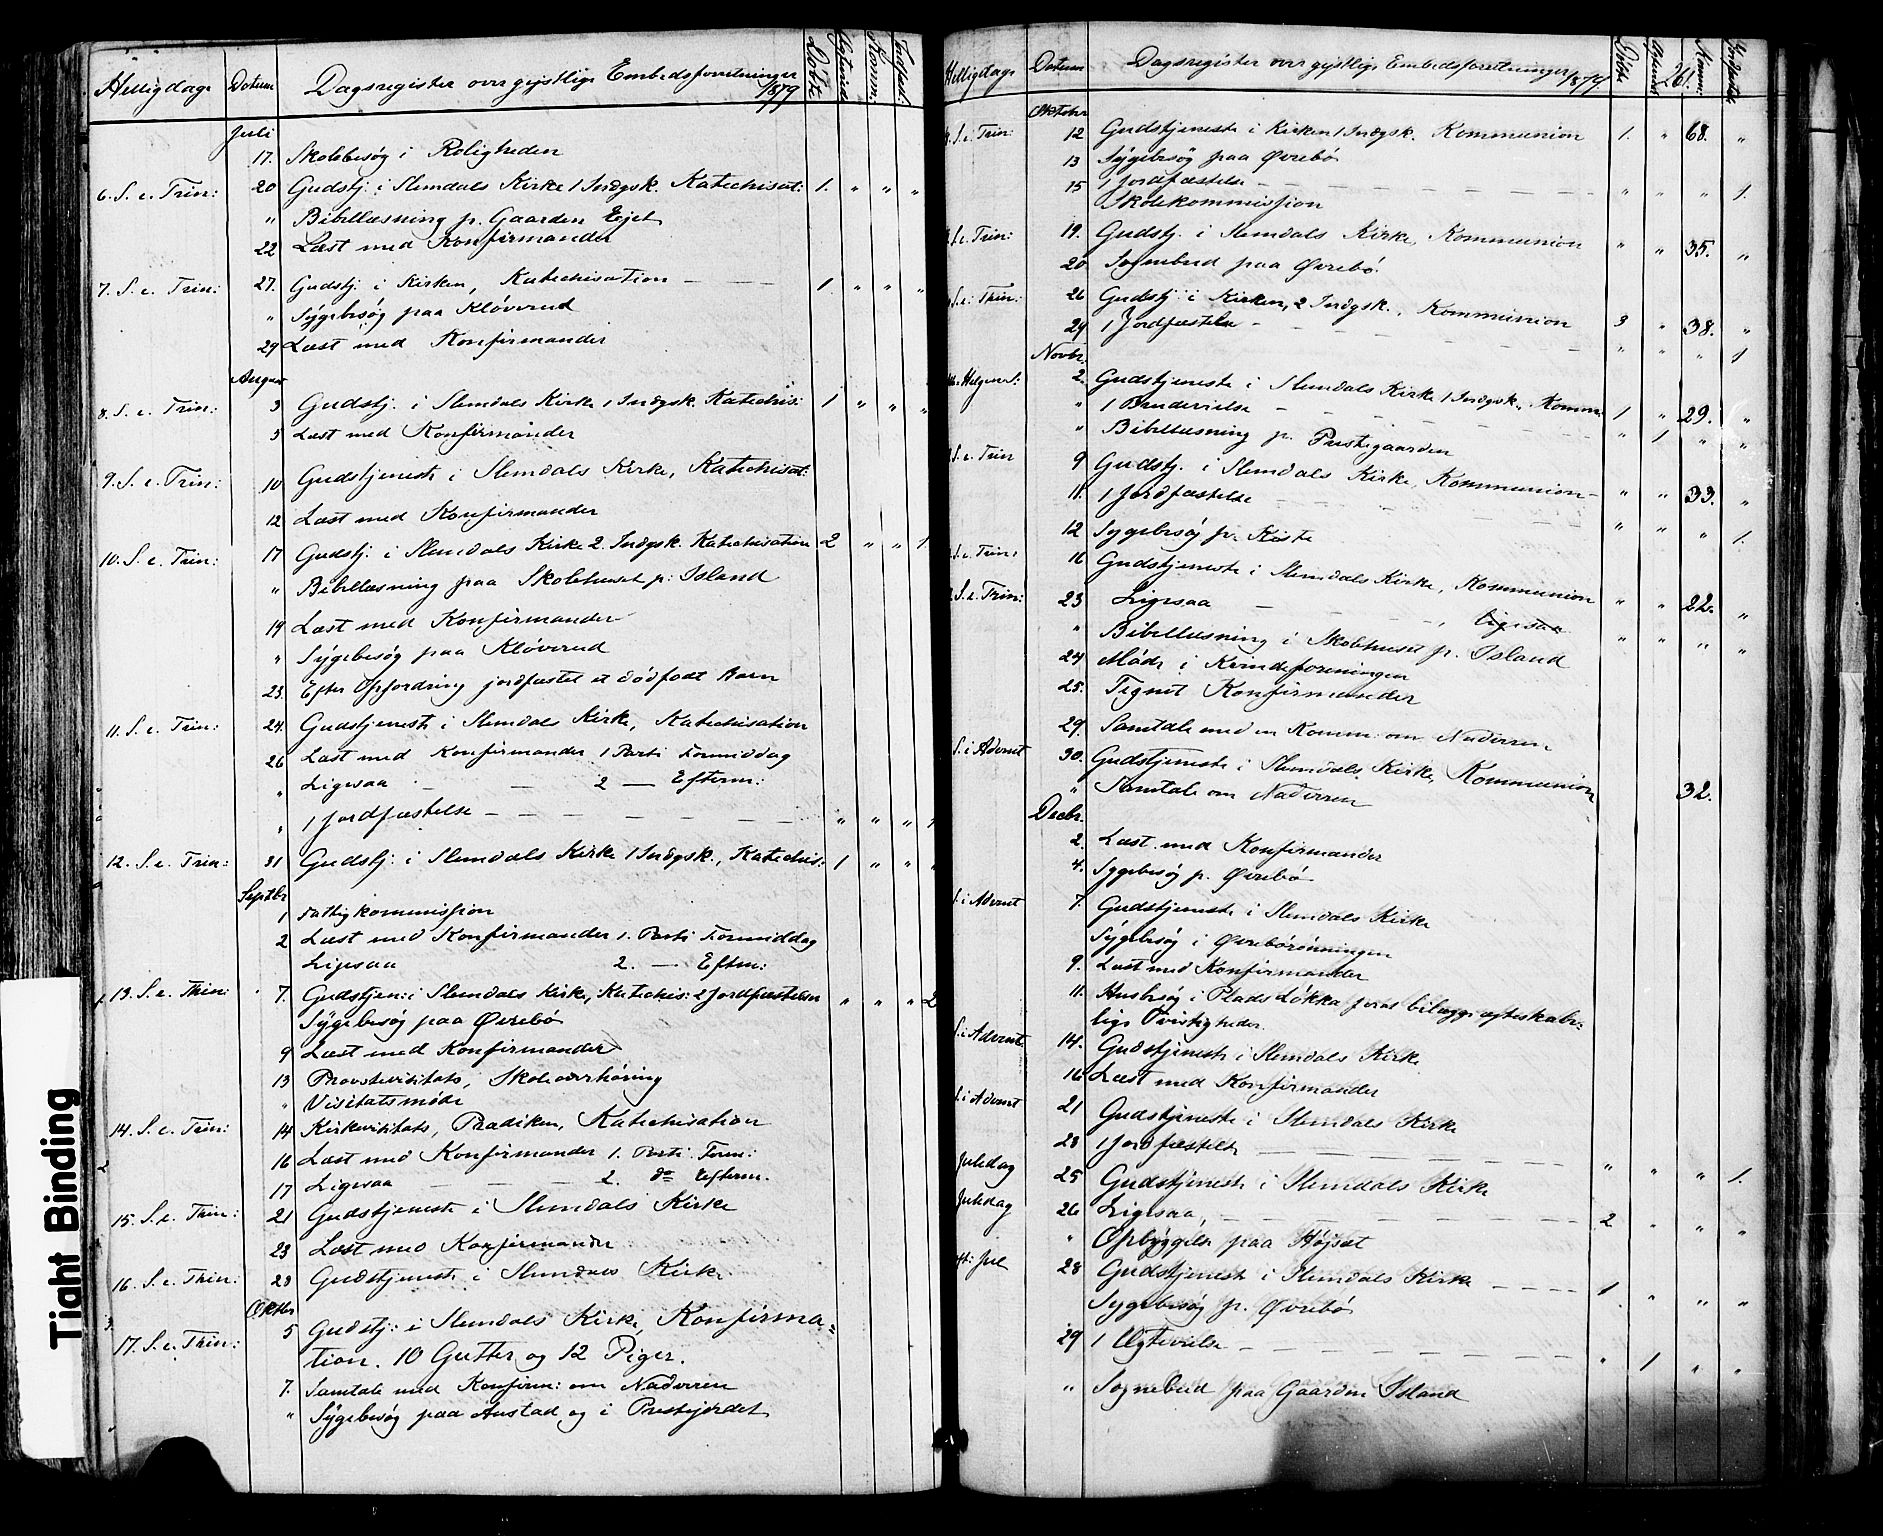 Helligdage Datum Dagsregister over gejstlige Embedsforretninger 1879 Døbte Ægtevid Komm: Jordfæst:
Juli
17. Skolebesøg i Roligheden
6. S. e. Trin: 20 Gudstj: i Slemdals Kirke 1 Indgsk. Katechisat: 1. " " "
" Bibellæsning p. Gaarden Ejet
22 Læst med Konfirmander
7. S. e. Trin: 27. Gudstj: i Kirken, Katechisation — — — 1. " " "
" Sygebesøg paa Kløverud
29 Læst med Konfirmander
August
8. S. e. Trin: 3 Gudstj. i Slemdals Kirke 1 Indgsk. Katechis: 1 " " "
5 Læst med Konfirmander
9. S. e. Trin: 10 Gudstjeneste i Slemdals Kirke, Katechisat:
12 Læst med Konfirmander
10. S. e. Trin: 17 Gudstj: i Slemdals Kirke 2 Indgsk. Katechisation 2 " " 1.
" Bibellæsning paa Skolehuset p: Island
19 Læst med Konfirmander
" Sygebesøg paa Kløverud
23. Efter Opfordring jordfæstet et dødfødt Barn
11. S. e. Trin: 24. Gudstjeneste i Slemdals Kirke, Katechisation
26 Læst med Konfirmander 1 Parti Formiddag
" Ligesaa — — 2 — Efterm:
" 1 Jordfæstelse — — — — — — — " " "
12. S. e. Trin: 31 Gudstj: i Slemdals Kirke 1 Indgsk., Katechis: 1 " " "
Septbr
1 Fattigkommission
2 Læst med Konfirmander 1. Parti Formiddag
Ligesaa 2. — Eftm:
13. S. e. Thin: 7. Gudstjen: i Slemdals Kirke, Katechis: 2 Jordfæstelser " " " 2
Sygebesøg paa Øvrebø
9 Læst med Konfirmander
13 Provstevisitats, Skoleoverhøring
" Visitatsmøde
14. S. e. Trin: 14 Kirkevisitats, Prædiken, Katechisation
16 Læst med Konfirmander 1. Parti Form:
17 Ligesaa — — — 2. do Efterm.
15. S. e. Thin: 21 Gudstjeneste i Slemdals Kirke
23 Læst med Konfirmander
16. S. e. Thin: 28 Gudstjeneste i Slemdals Kirke
Oktbr
17. S. e. Thin: 5 Gudstj: i Slemdals Kirke, Konfirma-
tion. 10 Gutter og 12 Piger.
7. Samtale med Konfirm: om Nadveren
" Sygebesøg paa Austad og i Prestejordet
Helligdage Datum Dagsregister over gejstlige Embedsforretninger 1879. Døbte 261. Komm:
Oktober
S. e. Trin: 12 Gudstjeneste i Kirken 1 Indgsk. Kommunion 1. " 68. "
13 Sygebesøg paa Øvrebø
15 1 Jordfæstelse — — — — — " " " 1.
Skolekommission
S. e. Trin: 19. Gudstj. i Slemdals Kirke, Kommunion " " 35. "
20 Sognebud paa Øvrebø
S. e. Thin: 26 Gudstj: i Kirken, 2 Indgsk., Kommunion 3 " 38. "
29 1 Jordfæstelse — — — — — " " " 1
Novbr.
Helgens: 2. Gudstjeneste i Slemdals Kirke 1 Indgsk., Komm: 1 " 29. "
" 1 Brudevielse — — — — — " 1 " "
" Bibellæsning p. Prestegaarden
S. e. Trin 9 Gudstj. i Slemdals Kirke, Kommunion — " " 33. "
11. 1 Jordfæstelse — — — — — " " " 1.
12 Sygebesøg p. Kiste
S. e. Trin: 16 Gudstjeneste i Slemdals Kirke, Kommunion " " 22. "
S. e. Trin: 23 Ligesaa — — —, Ligesaa " " " "
" Bibellæsning i Skolehuset p. Island
24 Møde i Kvindeforeningen
25. Tegnet Konfirmander
29. Samtale med en Komm: om Nadveren
S. i Advent 30. Gudstjeneste i Slemdals Kirke, Kommunion 32.
" Samtale om Nadveren
Decbr.
2. Læst med Konfirmander
4. Sygebesøg p. Øvrebø
S. i Advent 7. Gudstjeneste i Slemdals Kirke
Sygebesøg i Øvrebørønningen
9. Læst med Konfirmander
11. Husbesøg i Pladsen Løkka for at bilægge ægteskabe-
lige Tvistigheder.
S. i Advent 14. Gudstjeneste i Slemdals Kirke
16 Læst med Konfirmander
S. i Advent 21 Gudstjeneste i Slemdals Kirke
23 1 Jordfæstelse — — — — — " " " 1.
Juledag 25 Gudstjeneste i Slemdals Kirke
Juledag 26 Ligesaa, — — — — — 2 " " "
" Opbyggelse paa Højset
Jul 28 Gudstjeneste i Slemdals Kirke — — — 1. " " "
Sygebesøg p. Øvrebø
29 1 Ægtevielse — — — — — " 1 " "
" Sognebud paa Gaarden Island
Tight Binding